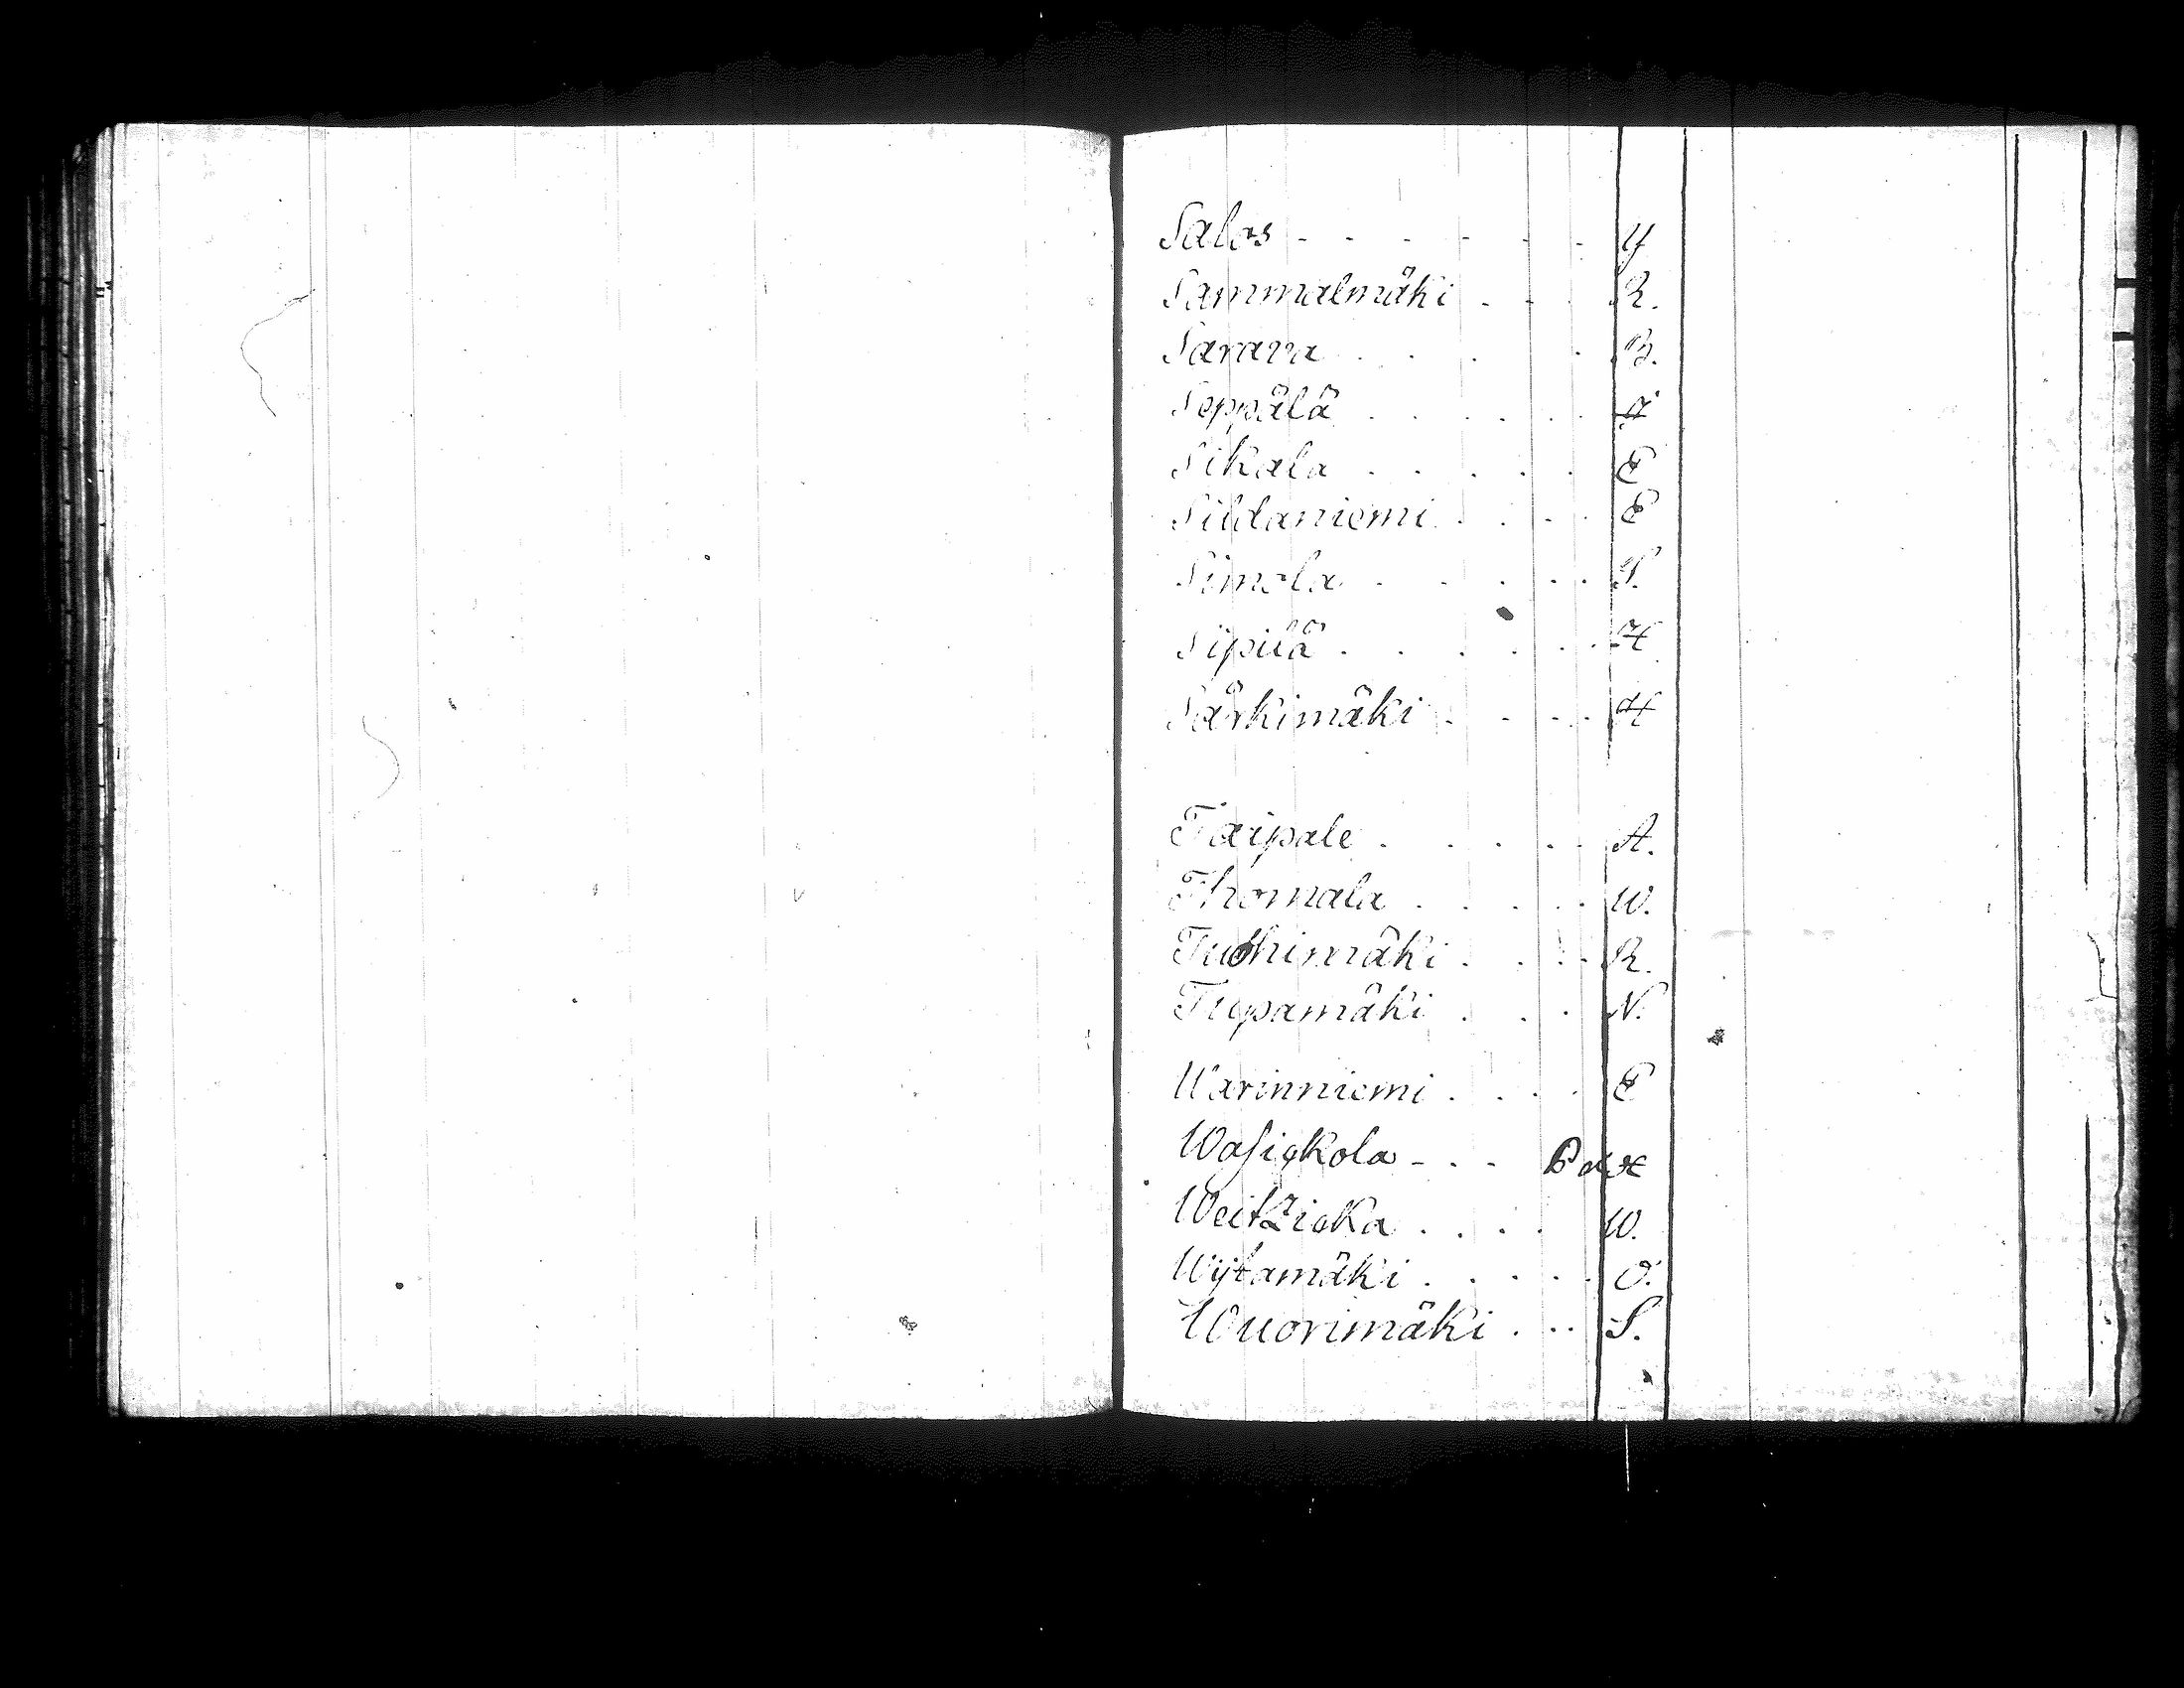 Salos - - - - - - Y
Sammalmäki . - . R.
Sarava . . . . B.
Seppälä . . . . .
Sikala . . . . . E
Sildaniemi . . . . E
Simola . . . . . S.
Sipilä . . . . . H
Särkimäki . . . . H
Taipale . . . . . A.
Thomala . . . . . W.
Tuohimäki . . . . R.
Tupamäki . . . N.
Warinniemi . . . . E
Wasigkola - . -
Weitzicka . . . . W.
Wijtamäki . . . . . O.
Wuorimäki . . . S.